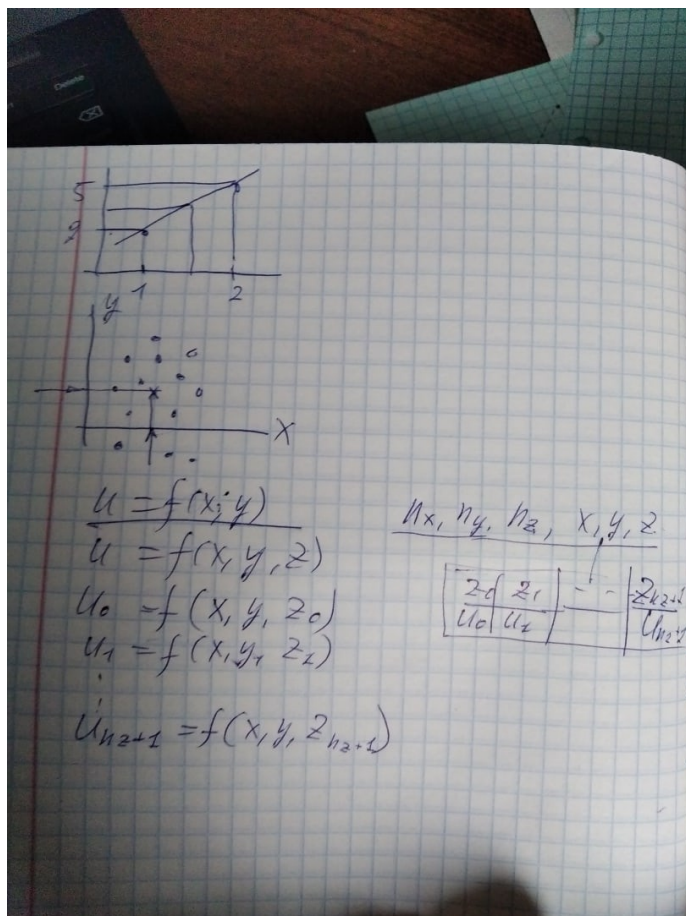 Delete
5
2
1 2
y
x
u = f(x, y)
u = f(x, y, z)
u₀ = f(x, y, z₀)
u₁ = f(x, y, z₁)
⋮
u_{nz+1} = f(x, y, z_{nz+1})
nx, ny, nz, x, y, z
z₀ | z₁ | - - | z_{nz+1}
u₀ | u₁ | | u_{nz+1}